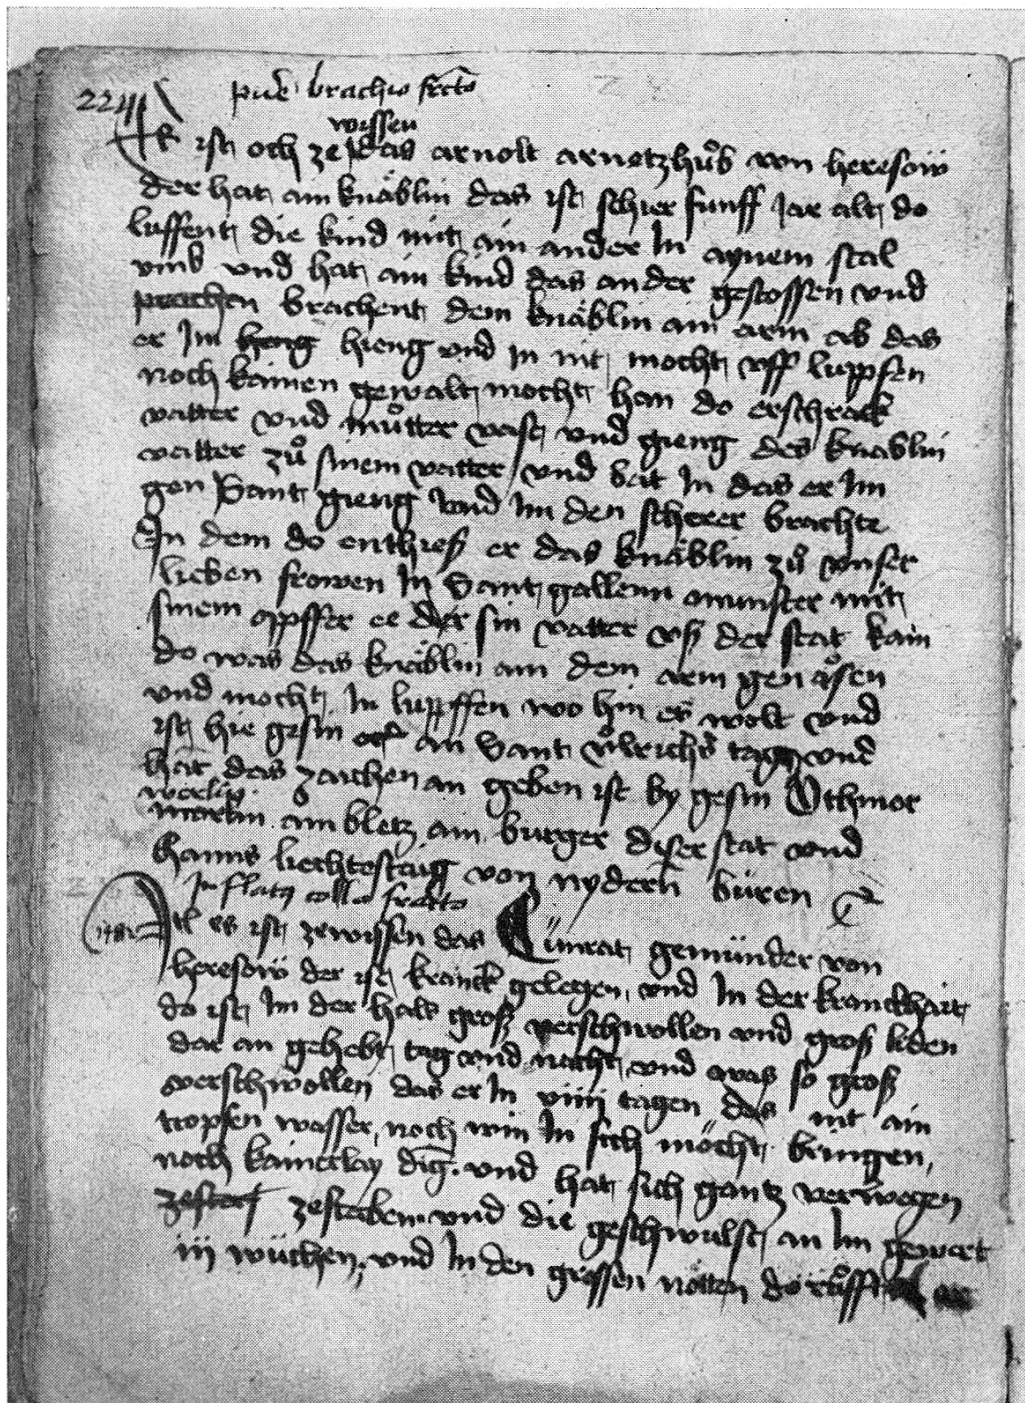 224
puer brachio fracto
wissen
Er ist och ze das arnolt arnetzhůb von heresöw
der hat ain knäblin das ist schier funff Jar alt do
luffent die kind mit ain ander In aynem stal
vmb vnd hat ain kind das ander gestossen vnd
prachen brachent dem knäblin ain arm ab das
er Im heng hieng vnd in nit mocht vff luppfen
noch kainen gewalt mocht han do erschrack
vatter vnd můtter vast vnd gieng des knäblin
vatter zů sinem vatter vnd bat In das er Im
gen Sant gieng vnd Im den scherer brachte
In dem do enthiess er das knäblin zů vnser
lieben frowen In Sant gallenn munster mit
sinem opffer ee der sin vatter vss der stat kam
do was das knäblin an dem arm genäsen
vnd mocht In luppffen wo hin er wolt vnd
ist hie gesin an Sant vlrichs tag vnd
hat das zaichen an geben ist by gesin Othmor
martin ain bletz ain burger diser stat vnd
hanns liechtestaig von nydern büren
Inflatus collo
Itt es ist ze wissen das Cünrat gemünder von
heresöw der ist kranck gelegen, vnd In der kranckhait
do ist Im der hals gross verschwollen vnd gross liden
dar an gehebt tag vnd nacht, vnd was so gross
verschwollen das er In viiij tagen das nit ain
tropfen wasser, noch win In sich möcht bringen,
noch kainerlay ding. vnd hat sich gantz verwegen
zesterben vnd die geschwulst an Im gewert
iij wüchen, vnd In den grossen nötten do růfft er